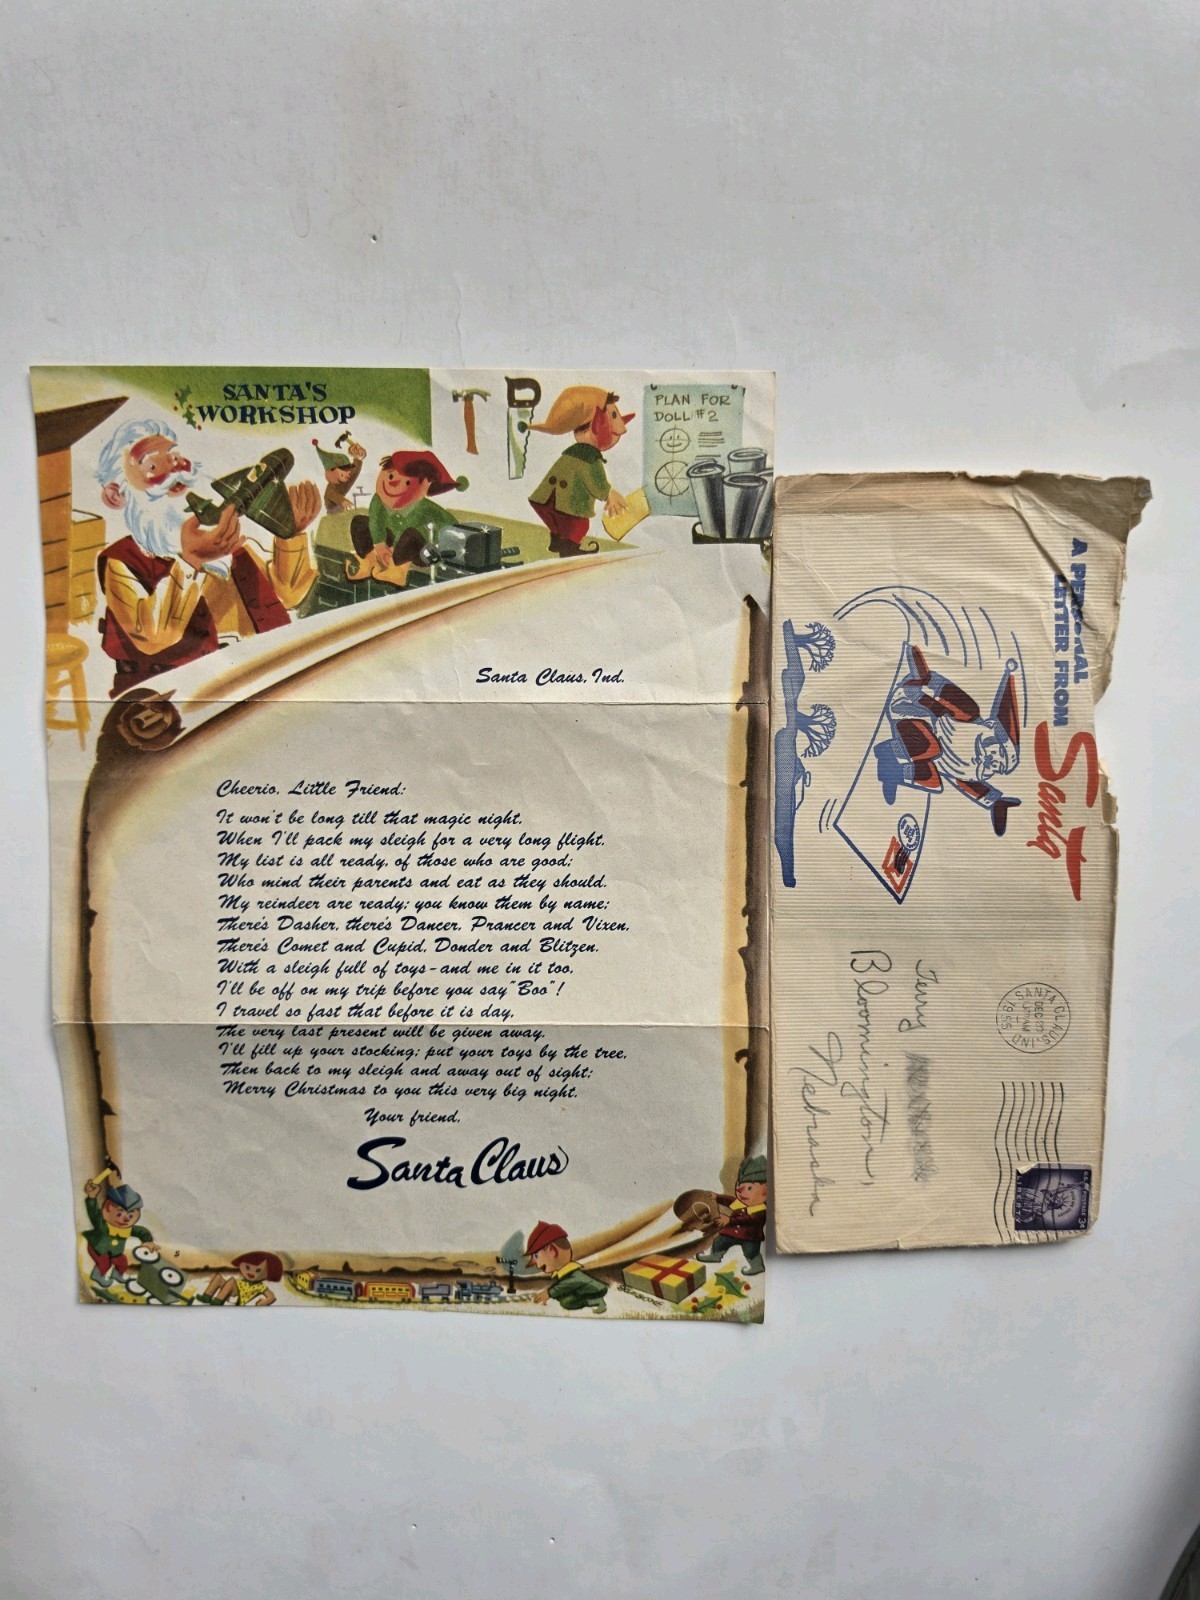 SANTA'S
WORKSHOP
PLAN FOR
DOLL #2
Santa Claus, Ind.
Cheerio, Little Friend:
It won't be long till that magic night,
When I'll pack my sleigh for a very long flight.
My list is all ready, of those who are good;
Who mind their parents and eat as they should.
My reindeer are ready; you know them by name;
There's Dasher, there's Dancer, Prancer and Vixen,
There's Comet and Cupid, Donder and Blitzen.
With a sleigh full of toys - and me in it too,
I'll be off on my trip before you say "Boo"!
I travel so fast that before it is day,
The very last present will be given away.
I'll fill up your stocking; put your toys by the tree,
Then back to my sleigh and away out of sight;
Merry Christmas to you this very big night.
Your friend,
Santa Claus
5
A PERSONAL
LETTER FROM
Santa
SANTA CLAUS, IND.
DEC
1955
3¢
LIBERTY
Terry
Bloomington,
Nebraska